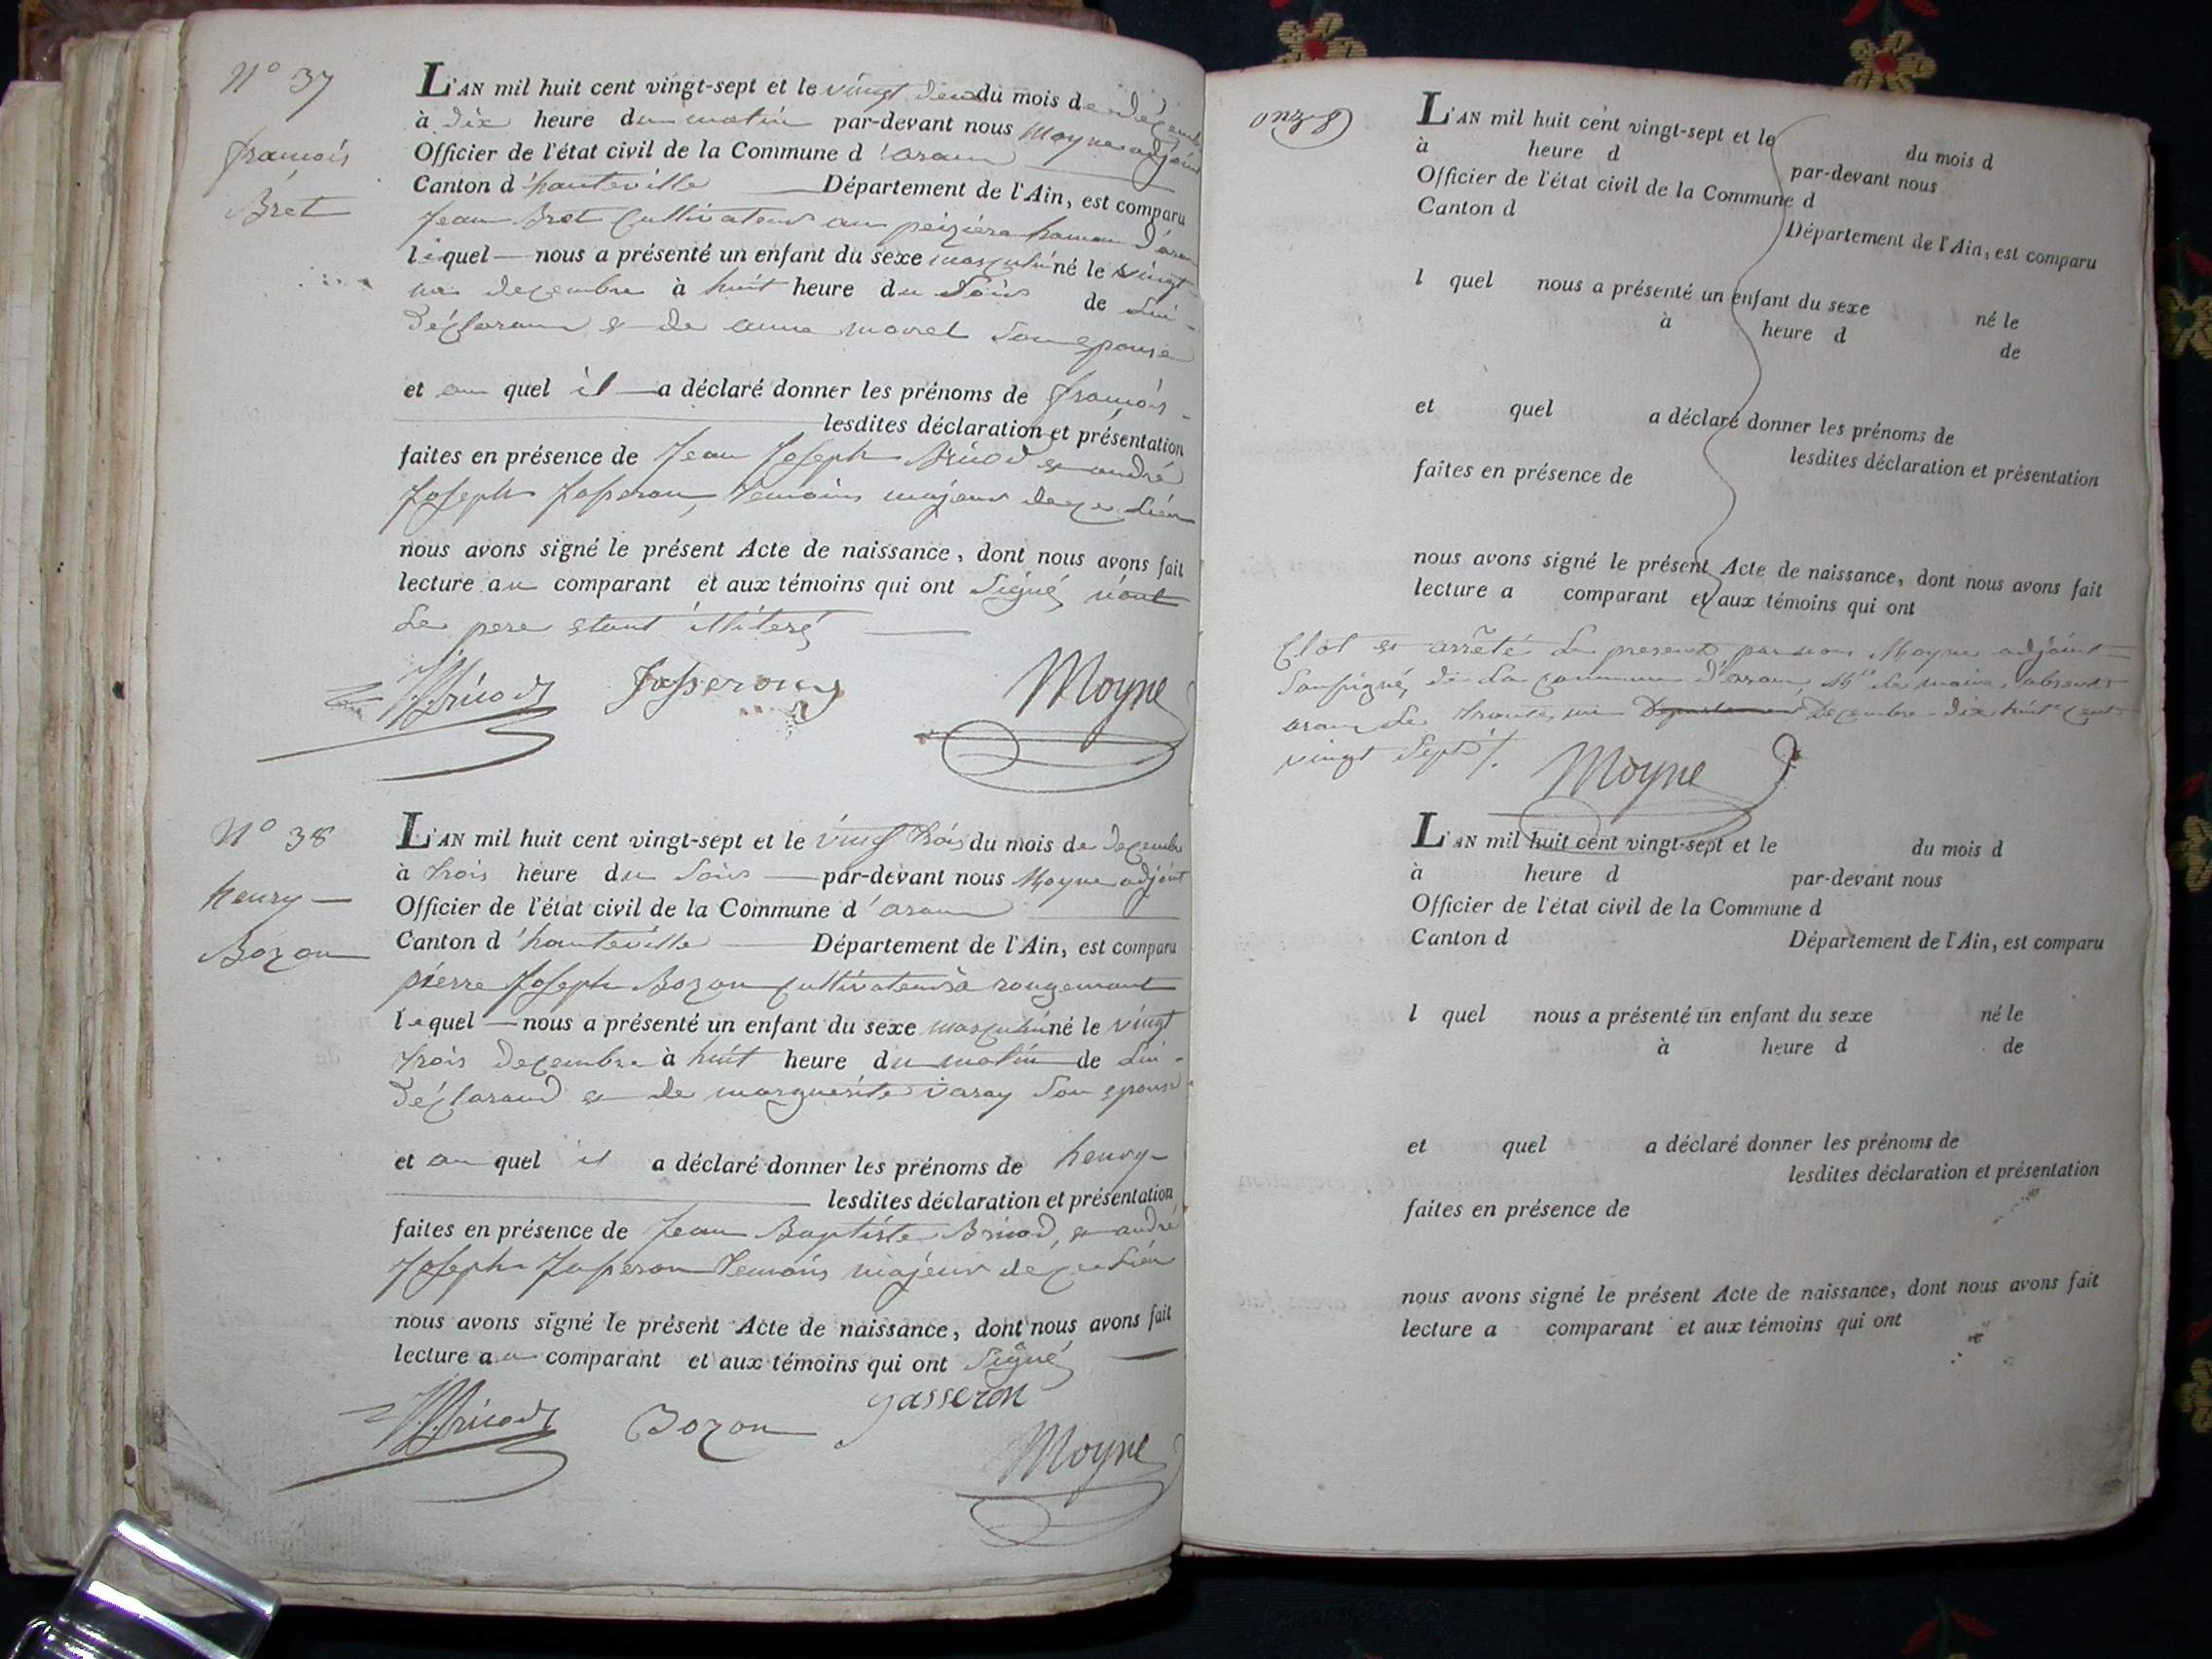 N° 37
françois
Bret
L'AN mil huit cent vingt-sept et le vingt deux du mois de decembre
à dix heure du matin par-devant nous Moyne adjoint
Officier de l'état civil de la Commune d'aran
Canton d'hauteville Département de l'Ain, est comparu
Jean Bret Cultivateur au hameau d'aran
lequel nous a présenté un enfant du sexe masculin né le vingt
un decembre à huit heure du Soir de Lui
déclarant et de anne morel Son epouse
et au quel il a déclaré donner les prénoms de françois
lesdites déclaration et présentation
faites en présence de Jean Joseph Bricod et andré
Joseph Jasseron, temoins majeurs de ce Lieu
nous avons signé le présent Acte de naissance, dont nous avons fait
lecture au comparant et aux témoins qui ont Signé
Le pere etant illiteré
Bricod Jasseron Moyne
N° 38
henry
Bozon
L'AN mil huit cent vingt-sept et le vingt trois du mois de decembre
à trois heure du Soir par-devant nous Moyne adjoint
Officier de l'état civil de la Commune d'aran
Canton d'hauteville Département de l'Ain, est comparu
pierre Joseph Bozon Cultivateur à rougemont
lequel nous a présenté un enfant du sexe masculin né le vingt
trois decembre à huit heure du matin de Lui
déclarand et de marguerite varay Son epouse
et au quel il a déclaré donner les prénoms de henry
lesdites déclaration et présentation
faites en présence de Jean Baptiste Bricod, et andré
Joseph Jasseron temoins majeurs de ce Lieu
nous avons signé le présent Acte de naissance, dont nous avons fait
lecture au comparant et aux témoins qui ont Signé
Bricod Bozon gasseron
Moyne
L'AN mil huit cent vingt-sept et le du mois d
à heure d par-devant nous
Officier de l'état civil de la Commune d
Canton d Département de l'Ain, est comparu
l quel nous a présenté un enfant du sexe né le
à heure d de
et quel a déclaré donner les prénoms de
lesdites déclaration et présentation
faites en présence de
nous avons signé le présent Acte de naissance, dont nous avons fait
lecture a comparant et aux témoins qui ont
Clot et arrêté Le present par nous Moyne adjoint
Soussigné, de La Commune d'aran, Mr Le maire absent
aran Le trente un Decembre dix huit cent
vingt Sept
Moyne
L'AN mil huit cent vingt-sept et le du mois d
à heure d par-devant nous
Officier de l'état civil de la Commune d
Canton d Département de l'Ain, est comparu
l quel nous a présenté un enfant du sexe né le
à heure d de
et quel a déclaré donner les prénoms de
lesdites déclaration et présentation
faites en présence de
nous avons signé le présent Acte de naissance, dont nous avons fait
lecture a comparant et aux témoins qui ont